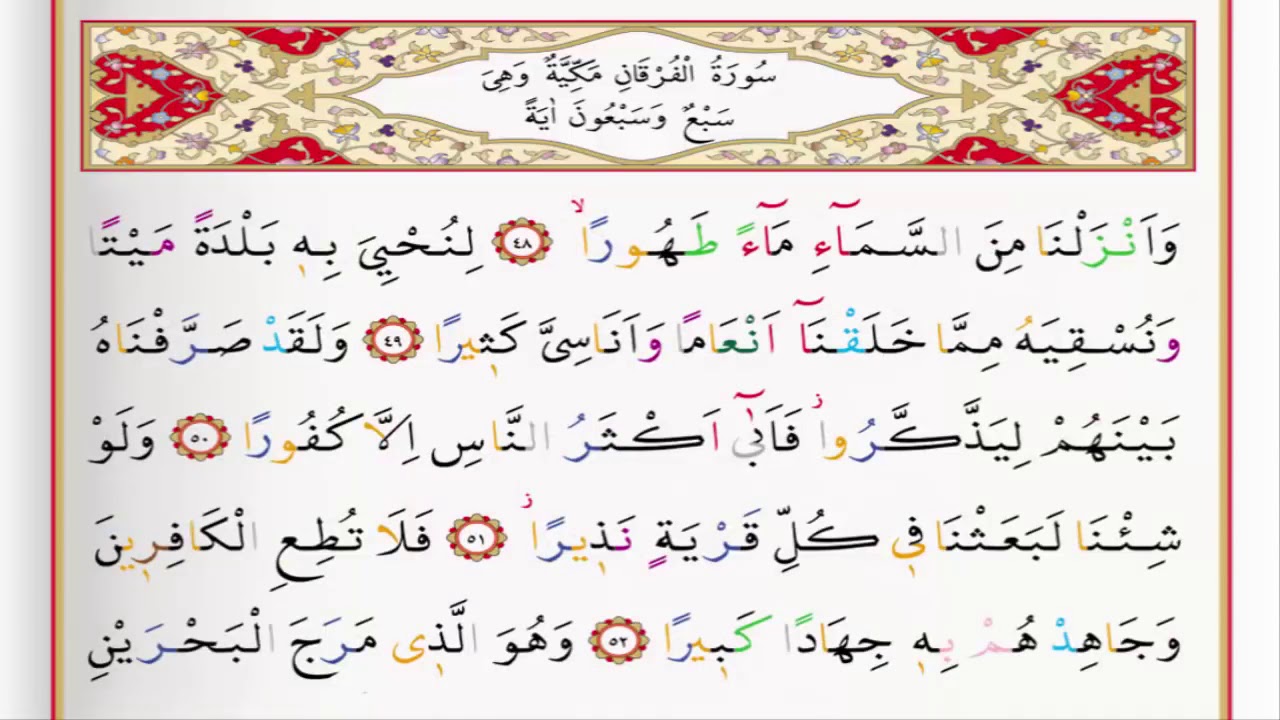 سُورَةُ الْفُرْقَانِ مَكِّيَّةٌ وَهِىَ
سَبْعٌ وَسَبْعُونَ اٰيَةً
وَاَنْزَلْنَا مِنَ السَّمَٓاءِ مَٓاءً طَهُورًاۙ ﴿٤٨﴾ لِنُحْيِيَ بِه۪ بَلْدَةً مَيْتًا
وَنُسْقِيَهُ مِمَّا خَلَقْنَٓا اَنْعَامًا وَاَنَاسِىَّ كَث۪يرًا ﴿٤٩﴾ وَلَقَدْ صَرَّفْنَاهُ
بَيْنَهُمْ لِيَذَّكَّرُواۘ فَاَبٰٓى اَكْثَرُ النَّاسِ اِلَّا كُفُورًا ﴿٥٠﴾ وَلَوْ
شِئْنَا لَبَعَثْنَا ف۪ى كُلِّ قَرْيَةٍ نَذ۪يرًاۘ ﴿٥١﴾ فَلَا تُطِعِ الْكَافِر۪ينَ
وَجَاهِدْهُمْ بِه۪ جِهَادًا كَب۪يرًا ﴿٥٢﴾ وَهُوَ الَّذ۪ى مَرَجَ الْبَحْرَيْنِ